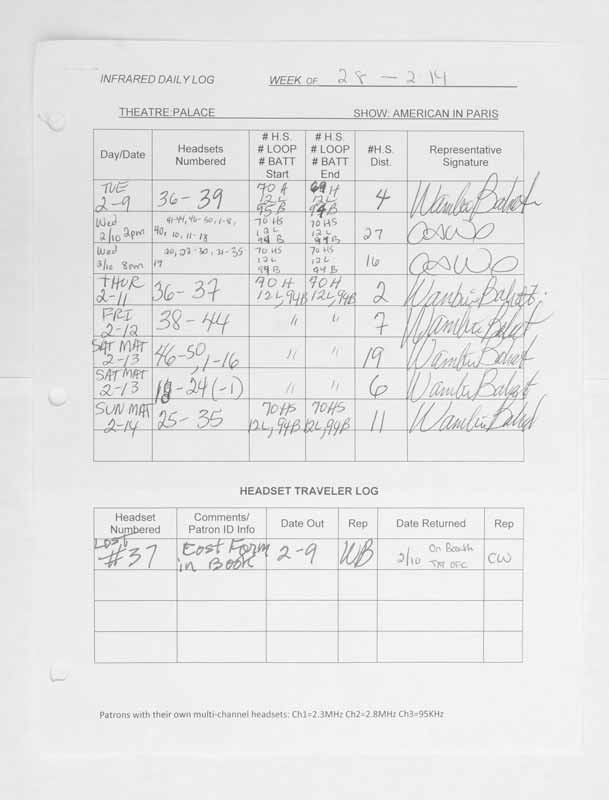 INFRARED DAILY LOG WEEK OF 2 8 - 2 14
THEATRE: PALACE SHOW: AMERICAN IN PARIS
Day/Date Headsets Numbered # H.S. # LOOP # BATT Start # H.S. # LOOP # BATT End #H.S. Dist. Representative Signature
TUE 2-9 36-39 70 H 12 L 95 B 69 H 12 L 94 B 4
Wed 2/10 2pm 41-44, 46-50, 1-8, 40, 10, 11-18 70 HS 12 L 94 B 70 HS 12 L 94 B 27
Wed 2/10 8pm 20, 22-30, 31-35 19 70 HS 12 L 94 B 70 HS 12 L 94 B 16
THUR 2-11 36-37 70 H 12 L, 94B 70 H 12 L, 94B 2
FRI 2-12 38-44 " " 7
SAT MAT 2-13 46-50, 1-16 " " 19
SAT MAT 2-13 18-24 (-1) " " 6
SUN MAT 2-14 25-35 70 HS 12 L, 94B 70 HS 12 L, 94B 11
HEADSET TRAVELER LOG
Headset Numbered Comments/ Patron ID Info Date Out Rep Date Returned Rep
LOST #37 Lost Form in Book 2-9 WB 2/10 On Booth CW
Patrons with their own multi-channel headsets: Ch1=2.3MHz Ch2=2.8MHz Ch3=95KHz